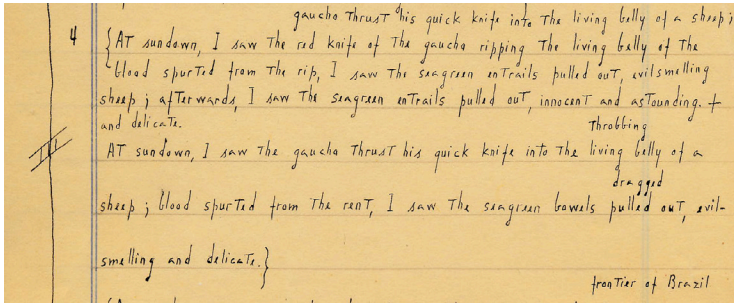 gaucho thrust his quick knife into the living belly of a sheep;
4
{At sundown, I saw the red knife of the gaucho ripping the living belly of the
blood spurted from the rip, I saw the seagreen entrails pulled out, evilsmelling
sheep; afterwards, I saw the seagreen entrails pulled out, innocent and astounding. +
and delicate.
throbbing
At sundown, I saw the gaucho thrust his quick knife into the living belly of a
dragged
sheep; blood spurted from the rent, I saw the seagreen bowels pulled out, evil-
smelling and delicate.}
frontier of Brazil